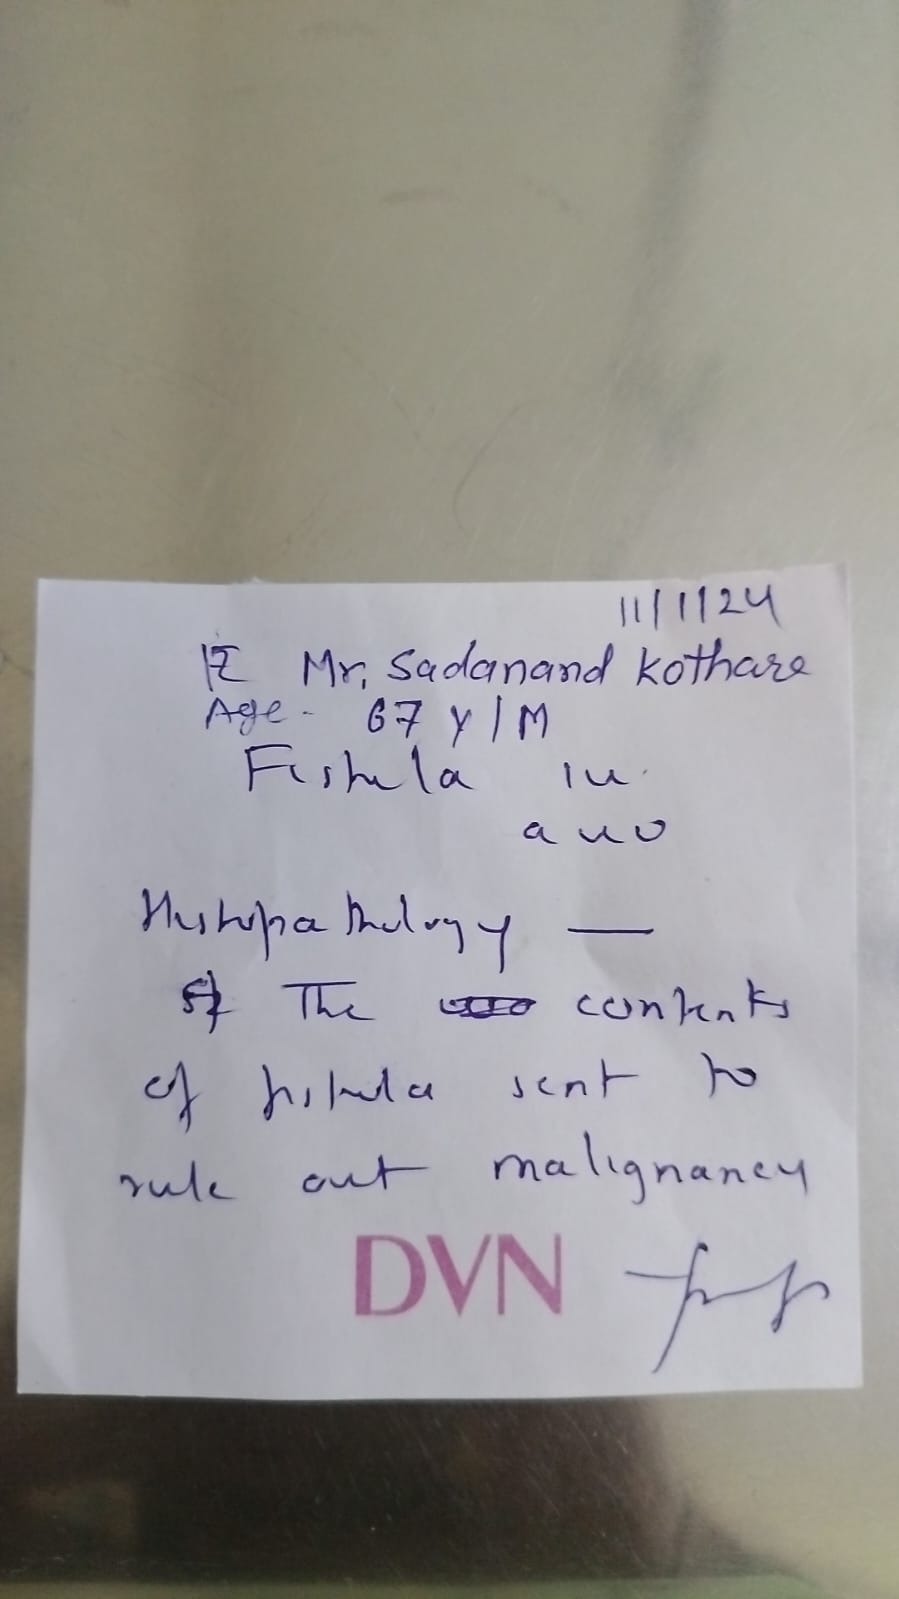 11/1/24
Mr. Sadanand Kothare
Age - 67 Y/M
Fistula in
ano
Histopathology —
The contents
of fistula sent to
rule out malignancy
DVN